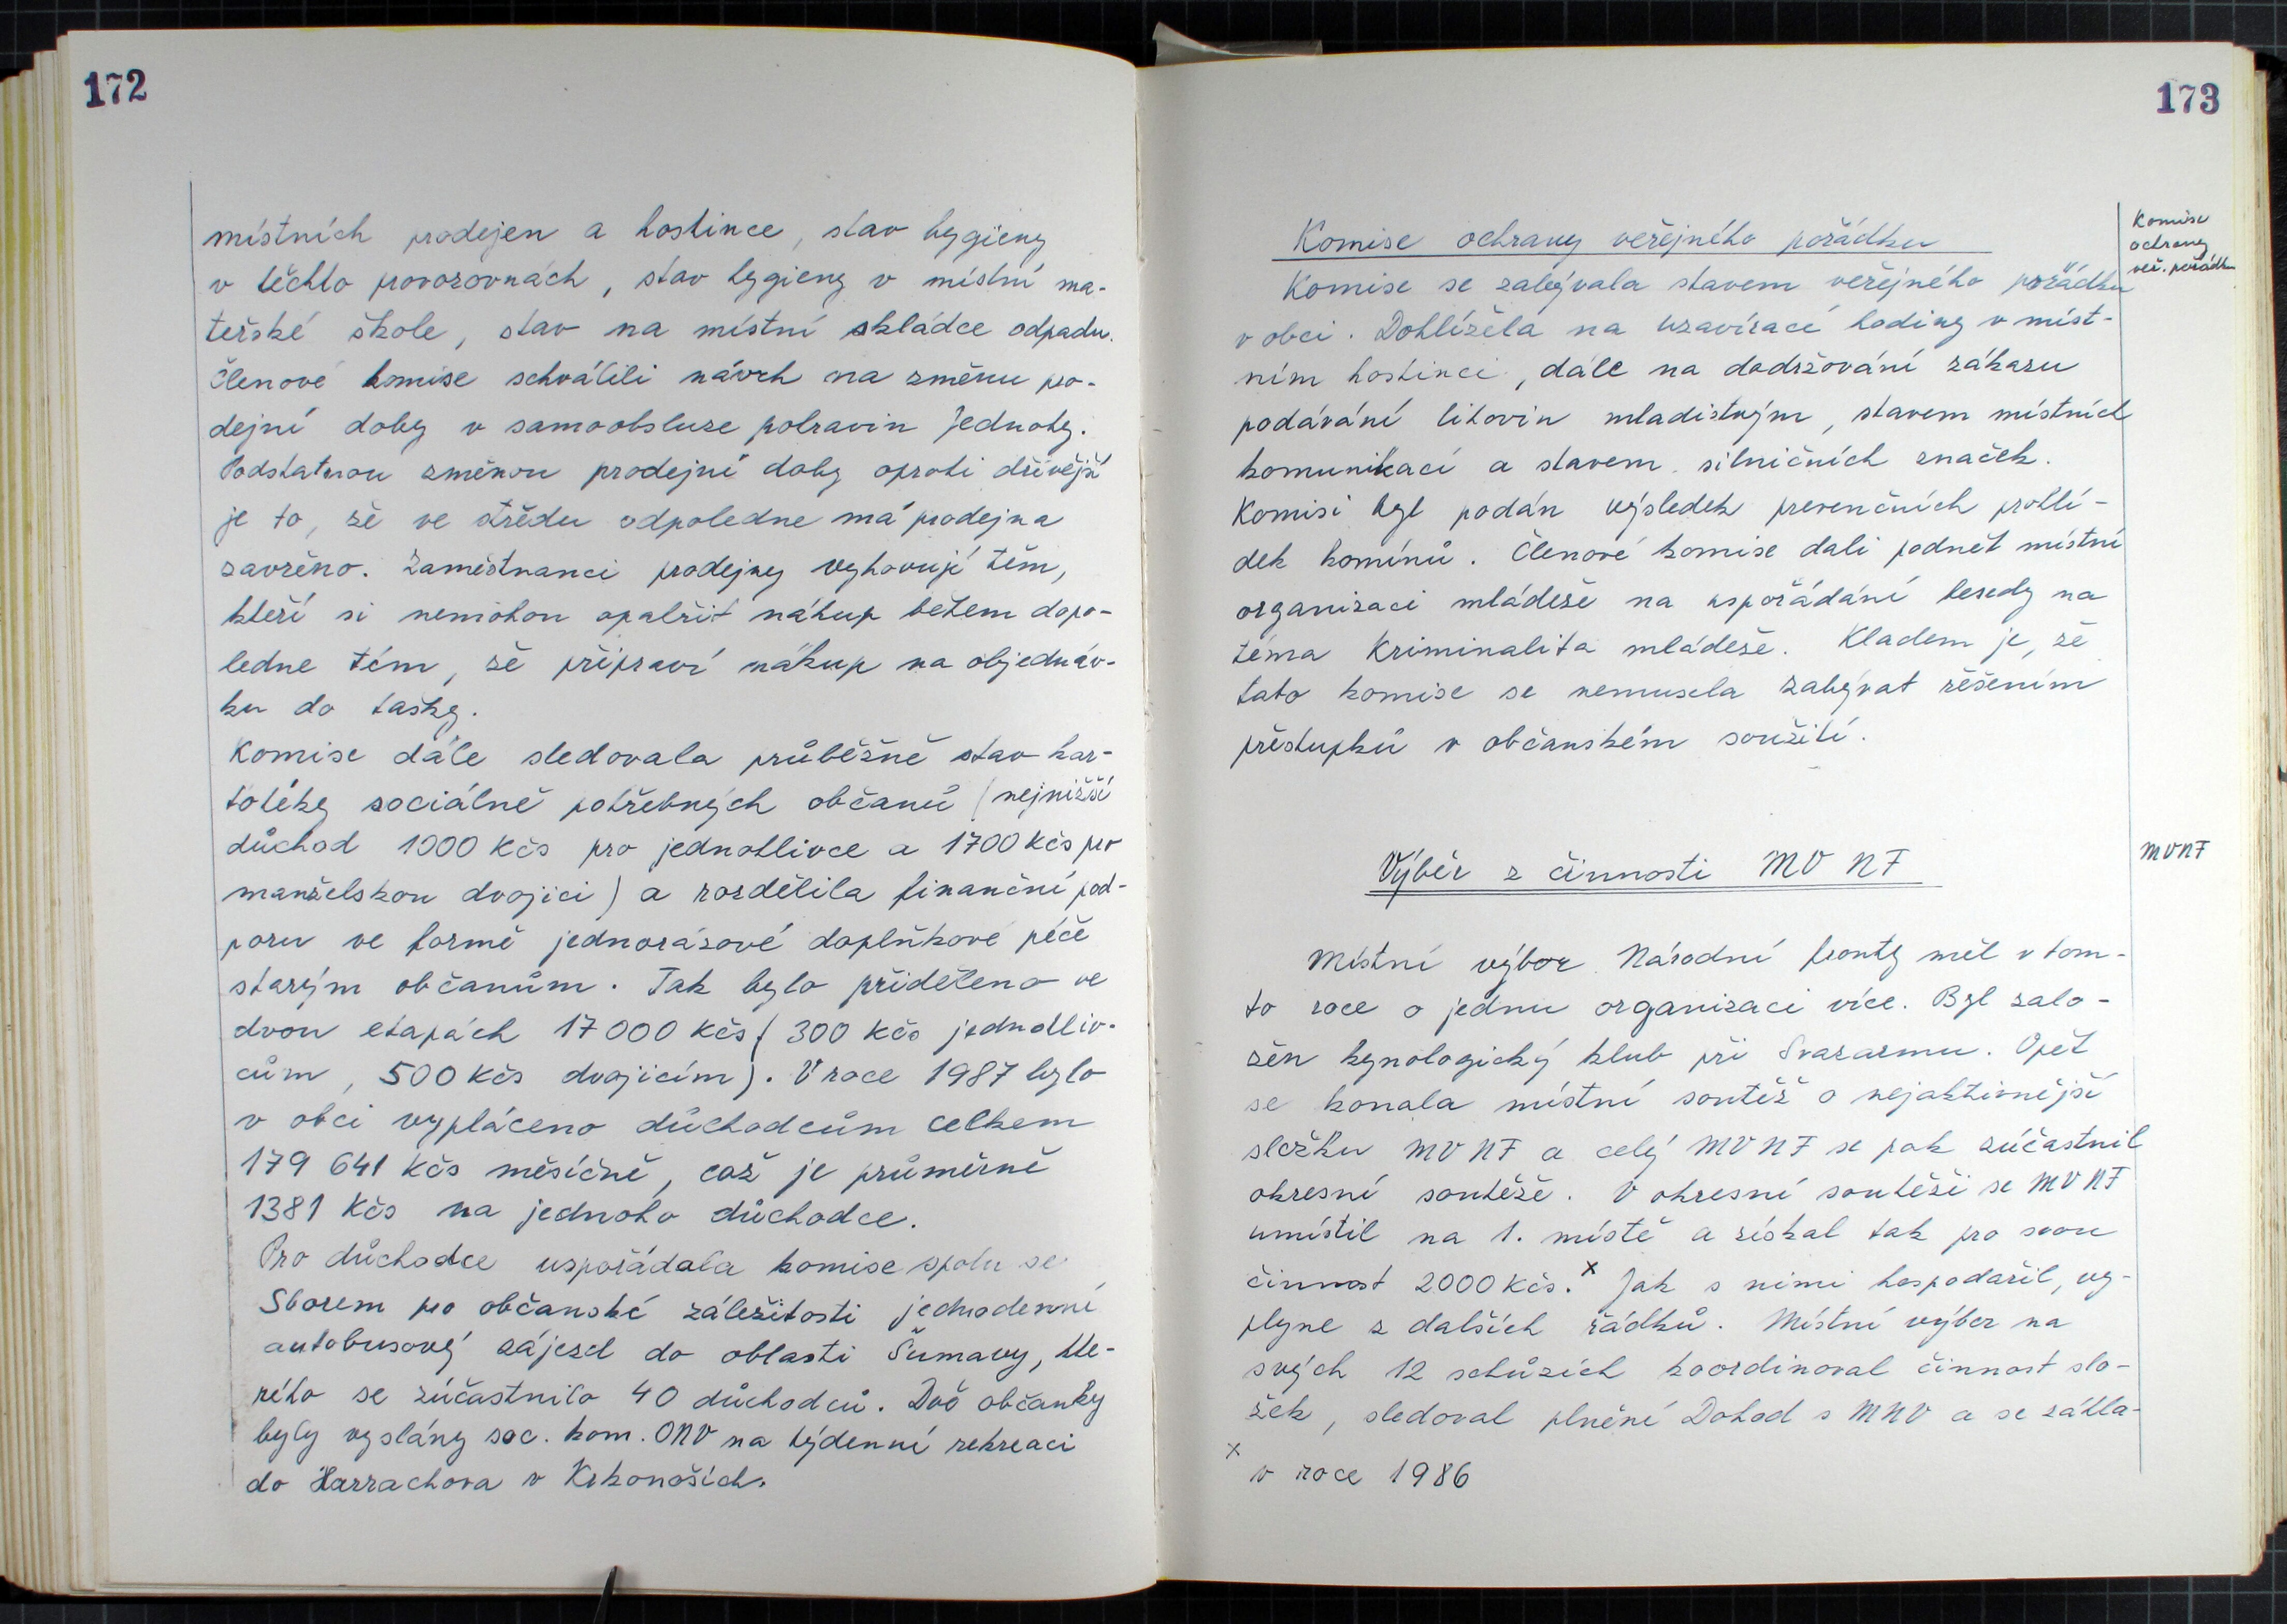 172
místních prodejen a hostince, stav hygieny
v těchto provozovnách, stav hygieny v místní ma-
teřské škole, stav na místní skládce odpadu.
Členové komise schválili návrh na změnu pro-
dejní doby v samoobsluze potravin Jednoty.
Podstatnou změnou prodejní doby oproti dřívější
je to, že ve středu odpoledne má prodejna
zavřeno. Zaměstnanci prodejny vyhovují těm,
kteří si nemohou opatřit nákup během dopo-
ledne tím, že připraví nákup na objednáv-
ku do tašky.
Komise dále sledovala průběžně stav kar-
totéky sociálně potřebných občanů (nejnižší
důchod 1000 Kčs pro jednotlivce a 1700 Kčs pro
manželskou dvojici) a rozdělila finanční pod-
poru ve formě jednorázové doplňkové péče
starým občanům. Tak bylo přiděleno ve
dvou etapách 17 000 Kčs (300 Kčs jednotliv-
cům, 500 Kčs dvojicím). V roce 1987 bylo
v obci vypláceno důchodcům celkem
179 641 Kčs měsíčně, což je průměrně
1381 Kčs na jednoho důchodce.
Pro důchodce uspořádala komise spolu se
Sborem pro občanské záležitosti jednodenní
autobusový zájezd do oblasti Šumavy, kte-
rého se zúčastnilo 40 důchodců. Dvě občanky
byly vyslány soc. kom. ONV na týdenní rekreaci
do Harrachova v Krkonoších.
173
Komise ochrany veřejného pořádku
Komise
ochrany
veř. pořádku
Komise se zabývala stavem veřejného pořádku
v obci. Dohlížela na uzavírací hodiny v míst-
ním hostinci, dále na dodržování zákazu
podávání lihovin mladistvým, stavem místních
komunikací a stavem silničních značek.
Komisi byl podán výsledek prevenčních prohlí-
dek komínů. Členové komise dali podnět místní
organizaci mládeže na uspořádání besedy na
téma Kriminalita mládeže. Kladem je, že
tato komise se nemusela zabývat řešením
přestupků v občanském soužití.
Výběr z činnosti MV NF
MVNF
Místní výbor Národní fronty měl v tom-
to roce o jednu organizaci více. Byl zalo-
žen kynologický klub při Svazarmu. Opět
se konala místní soutěž o nejaktivnější
složku MV NF a celý MV NF se pak zúčastnil
okresní soutěže. V okresní soutěži se MV NF
umístil na 1. místě a získal tak pro svou
činnost 2000 Kčs. x Jak s nimi hospodařil, vy-
plyne z dalších řádků. Místní výbor na
svých 12 schůzích koordinoval činnost slo-
žek, sledoval plnění Dohod s MNV a se zákla-
x
v roce 1986